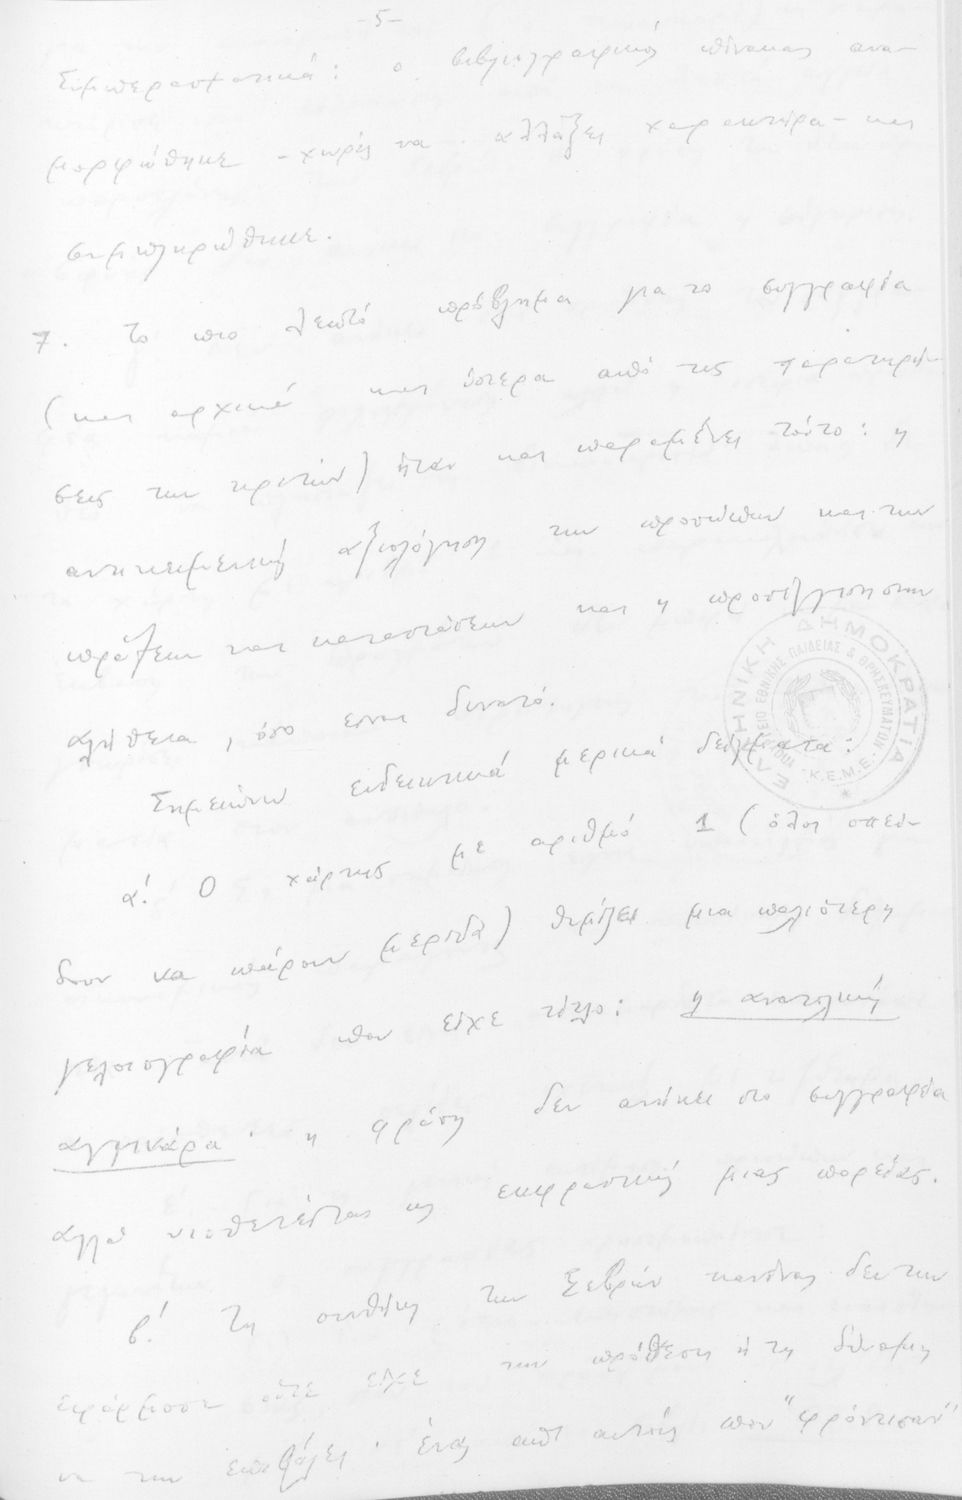 -5-
Συμπερασματικά: ο βιβλιογραφικός πίνακας ανα-
μορφώθηκε - χωρίς να αλλάξει χαρακτήρα - και
συμπληρώθηκε.
7. Το πιο λεπτό πρόβλημα για το συγγραφέα
(και αρχικά και ύστερα από τις παρατηρή-
σεις των κριτών) ήταν και παραμένει τούτο: η
αντικειμενική αξιολόγηση των προσώπων και των
πράξεων και καταστάσεων και η προσέγγιση στην
αλήθεια, όσο είναι δυνατό.
Σημειώνω ενδεικτικά μερικά δείγματα:
α! Ο χάρτης με αριθμό 1 (όλοι σπεύ-
δουν να πάρουν μερίδα) θυμίζει μια παλιότερη
γελοιογραφία που είχε τίτλο: η ανατολική
αγγινάρα· η φράση δεν ανήκει στο συγγραφέα
αλλά υιοθετείται ως εκφραστική μιας πορείας.
β! Τη συνθήκη των Σεβρών κανένας δεν την
εφάρμοσε ούτε είχε την πρόθεση ή τη δύναμη
να την επιβάλει· ένας από αυτούς που "φρόντισαν"
ΕΛΛΗΝΙΚΗ ΔΗΜΟΚΡΑΤΙΑ
ΥΠΟΥΡΓΕΙΟ ΕΘΝΙΚΗΣ ΠΑΙΔΕΙΑΣ & ΘΡΗΣΚΕΥΜΑΤΩΝ
Κ.Ε.Μ.Ε.